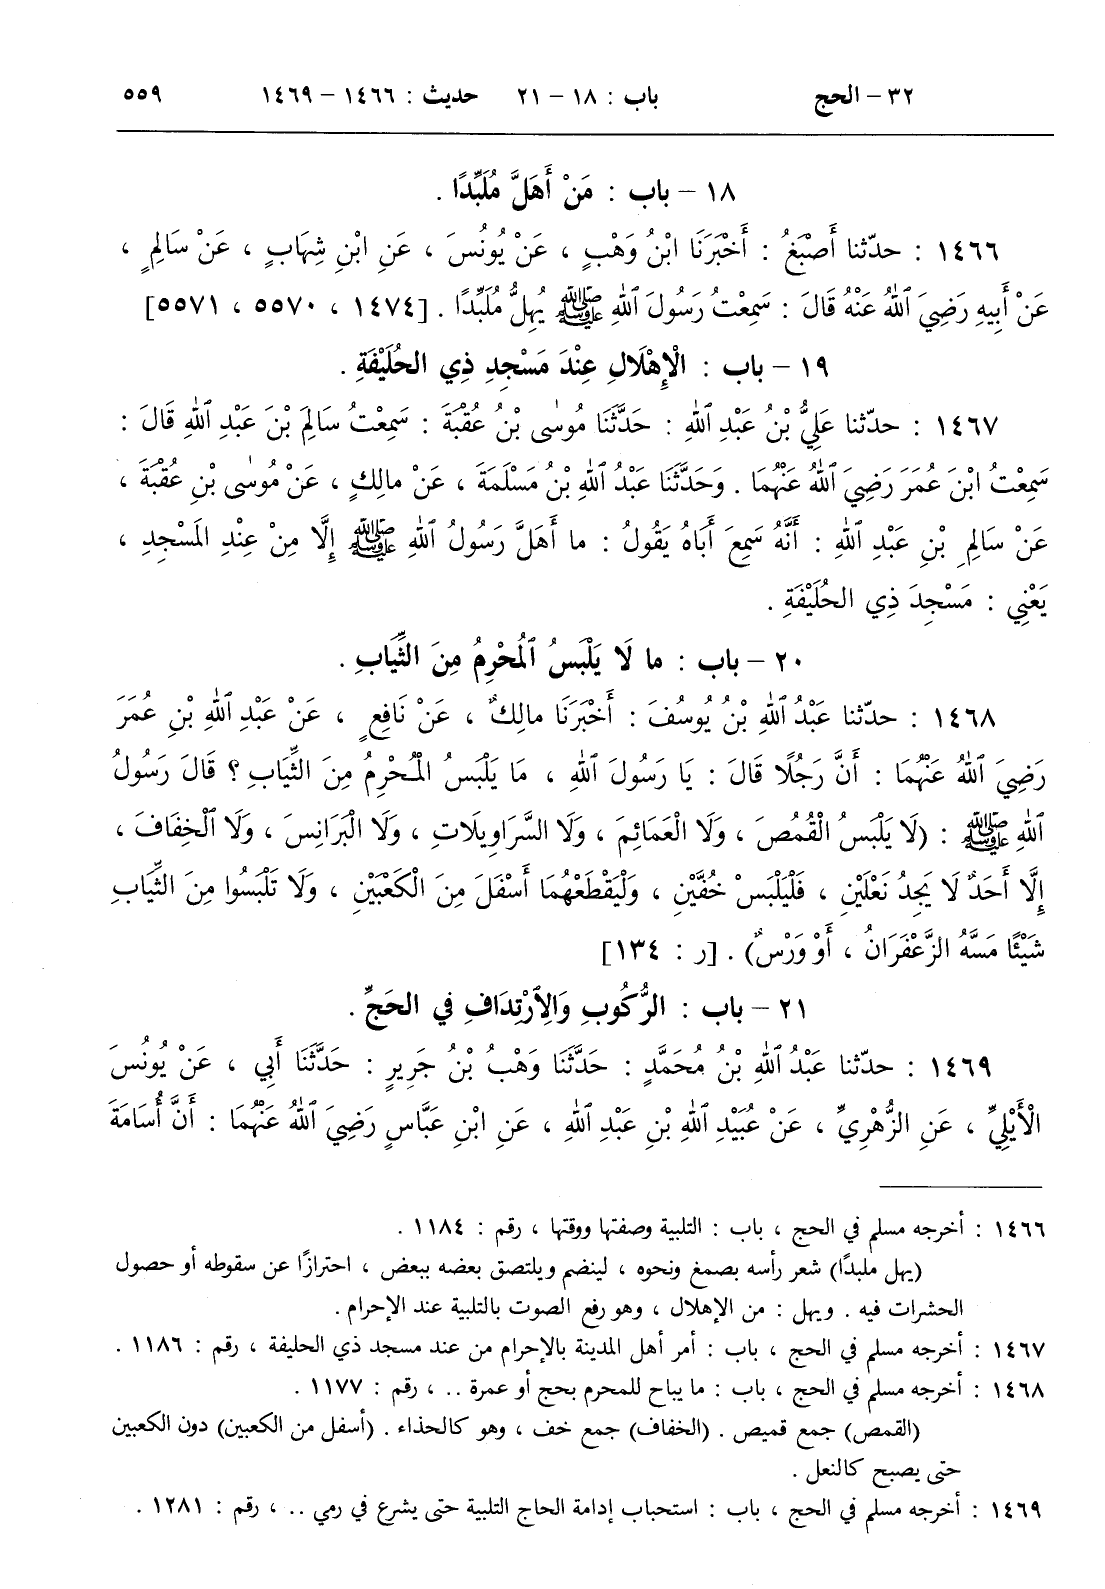 ٣٢ – الحج باب : ١٨ – ٢١ حديث : ١٤٦٦ – ١٤٦٩ ٥٥٩
١٨ – باب : مَنْ أَهَلَّ مُلَبِّدًا .
١٤٦٦ : حدّثنا أَصْبَغُ : أَخْبَرَنَا ابْنُ وَهْبٍ ، عَنْ يُونُسَ ، عَنِ ابْنِ شِهَابٍ ، عَنْ سَالِمٍ ،
عَنْ أَبِيهِ رَضِيَ ٱللهُ عَنْهُ قَالَ : سَمِعْتُ رَسُولَ ٱللهِ ﷺ يُهِلُّ مُلَبِّدًا . [١٤٧٤ ، ٥٥٧٠ ، ٥٥٧١]
١٩ – باب : الْإِهْلَالِ عِنْدَ مَسْجِدِ ذِي الحُلَيْفَةِ .
١٤٦٧ : حدّثنا عَلِيُّ بْنُ عَبْدِ ٱللهِ : حَدَّثَنَا مُوسٰى بْنُ عُقْبَةَ : سَمِعْتُ سَالِمَ بْنَ عَبْدِ ٱللهِ قَالَ :
سَمِعْتُ ابْنَ عُمَرَ رَضِيَ ٱللهُ عَنْهُمَا . وَحَدَّثَنَا عَبْدُ ٱللهِ بْنُ مَسْلَمَةَ ، عَنْ مالِكٍ ، عَنْ مُوسٰى بْنِ عُقْبَةَ ،
عَنْ سَالِمِ بْنِ عَبْدِ ٱللهِ : أَنَّهُ سَمِعَ أَبَاهُ يَقُولُ : ما أَهَلَّ رَسُولُ ٱللهِ ﷺ إِلَّا مِنْ عِنْدِ المَسْجِدِ ،
يَعْنِي : مَسْجِدَ ذِي الحُلَيْفَةِ .
٢٠ – باب : ما لَا يَلْبَسُ ٱلْمُحْرِمُ مِنَ الثِّيَابِ .
١٤٦٨ : حدّثنا عَبْدُ ٱللهِ بْنُ يُوسُفَ : أَخْبَرَنَا مالِكٌ ، عَنْ نَافِعٍ ، عَنْ عَبْدِ ٱللهِ بْنِ عُمَرَ
رَضِيَ ٱللهُ عَنْهُمَا : أَنَّ رَجُلًا قَالَ : يَا رَسُولَ ٱللهِ ، مَا يَلْبَسُ الْمُحْرِمُ مِنَ الثِّيَابِ ؟ قَالَ رَسُولُ
ٱللهِ ﷺ : (لَا يَلْبَسُ الْقُمُصَ ، وَلَا الْعَمَائِمَ ، وَلَا السَّرَاوِيلَاتِ ، وَلَا الْبَرَانِسَ ، وَلَا ٱلْخِفَافَ ،
إِلَّا أَحَدٌ لَا يَجِدُ نَعْلَيْنِ ، فَلْيَلْبَسْ خُفَّيْنِ ، وَلْيَقْطَعْهُمَا أَسْفَلَ مِنَ الْكَعْبَيْنِ ، وَلَا تَلْبَسُوا مِنَ الثِّيَابِ
شَيْئًا مَسَّهُ الزَّعْفَرَانُ ، أَوْ وَرْسٌ) . [ر : ١٣٤]
٢١ – باب : الرُّكُوبِ وَالِٱرْتِدَافِ في الحَجِّ .
١٤٦٩ : حدّثنا عَبْدُ ٱللهِ بْنُ مُحَمَّدٍ : حَدَّثَنَا وَهْبُ بْنُ جَرِيرٍ : حَدَّثَنَا أَبِي ، عَنْ يُونُسَ
الْأَيْلِيِّ ، عَنِ الزُّهْرِيِّ ، عَنْ عُبَيْدِ ٱللهِ بْنِ عَبْدِ ٱللهِ ، عَنِ ابْنِ عَبَّاسٍ رَضِيَ ٱللهُ عَنْهُمَا : أَنَّ أُسَامَةَ
١٤٦٦ : أخرجه مسلم في الحج ، باب : التلبية وصفتها ووقتها ، رقم : ١١٨٤ .
(يهل ملبدًا) شعر رأسه بصمغ ونحوه ، لينضم ويلتصق بعضه ببعض ، احترازًا عن سقوطه أو حصول
الحشرات فيه . ويهل : من الإهلال ، وهو رفع الصوت بالتلبية عند الإحرام .
١٤٦٧ : أخرجه مسلم في الحج ، باب : أمر أهل المدينة بالإحرام من عند مسجد ذي الحليفة ، رقم : ١١٨٦ .
١٤٦٨ : أخرجه مسلم في الحج ، باب : ما يباح للمحرم بحج أو عمرة .. ، رقم : ١١٧٧ .
(القمص) جمع قميص . (الخفاف) جمع خف ، وهو كالحذاء . (أسفل من الكعبين) دون الكعبين
حتى يصبح كالنعل .
١٤٦٩ : أخرجه مسلم في الحج ، باب : استحباب إدامة الحاج التلبية حتى يشرع في رمي .. ، رقم : ١٢٨١ .